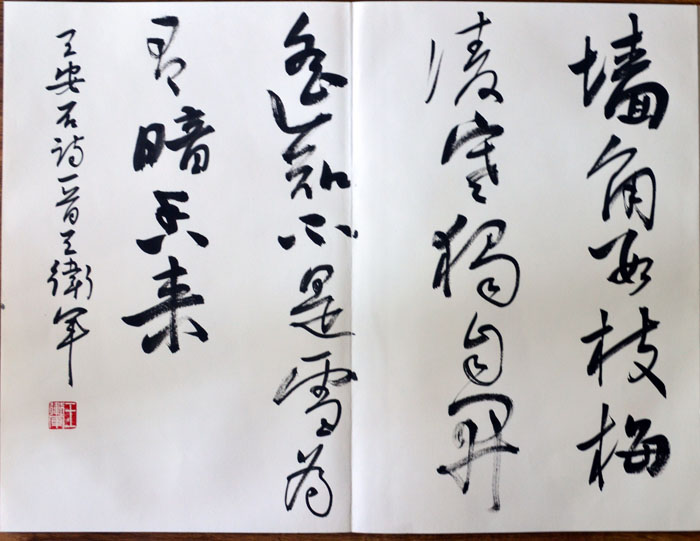 墙角数枝梅
凌寒独自开
遥知不是雪为
有暗香来
王安石诗一首王卫军
王卫军